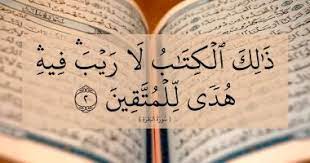 ذَٰلِكَ ٱلْكِتَٰبُ لَا رَيْبَ ۛ فِيهِ ۛ
هُدًى لِّلْمُتَّقِينَ ٢
( سورة البقرة )